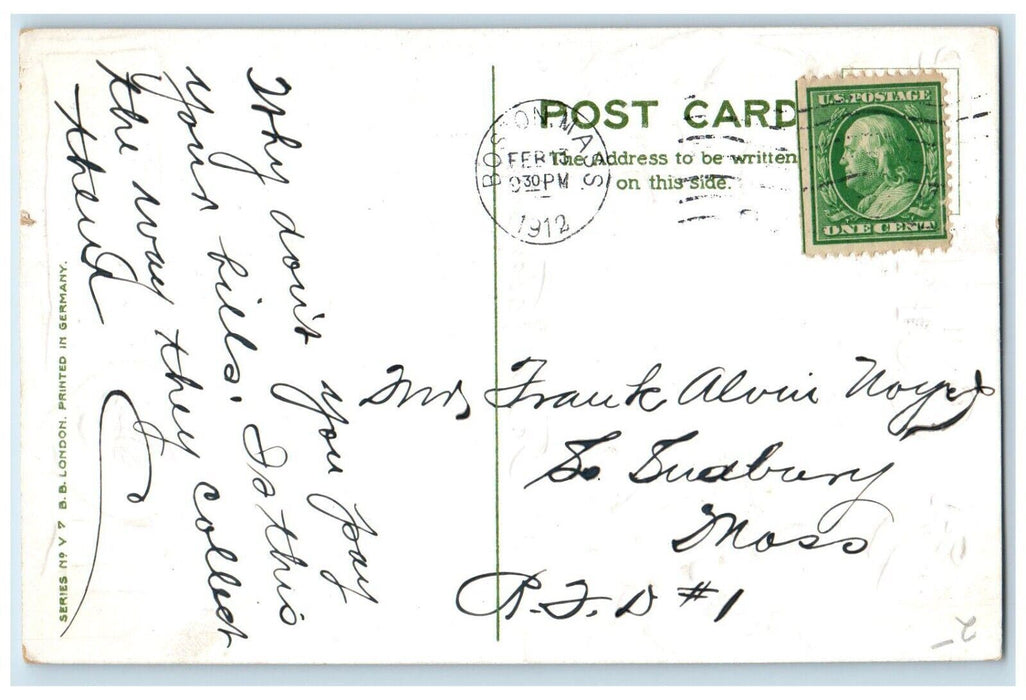 Why don't you pay
your bills. Is this
the way they collect
them
SERIES Nº V 7 B.B. LONDON. PRINTED IN GERMANY.
POST CARD
The Address to be written
on this side.
BOSTON, MASS
FEB 13
9 30 PM
1912
U.S. POSTAGE
ONE CENT
Mrs Frank Alvin Noyes
So. Sudbury
Mass
R.F.D #1
2